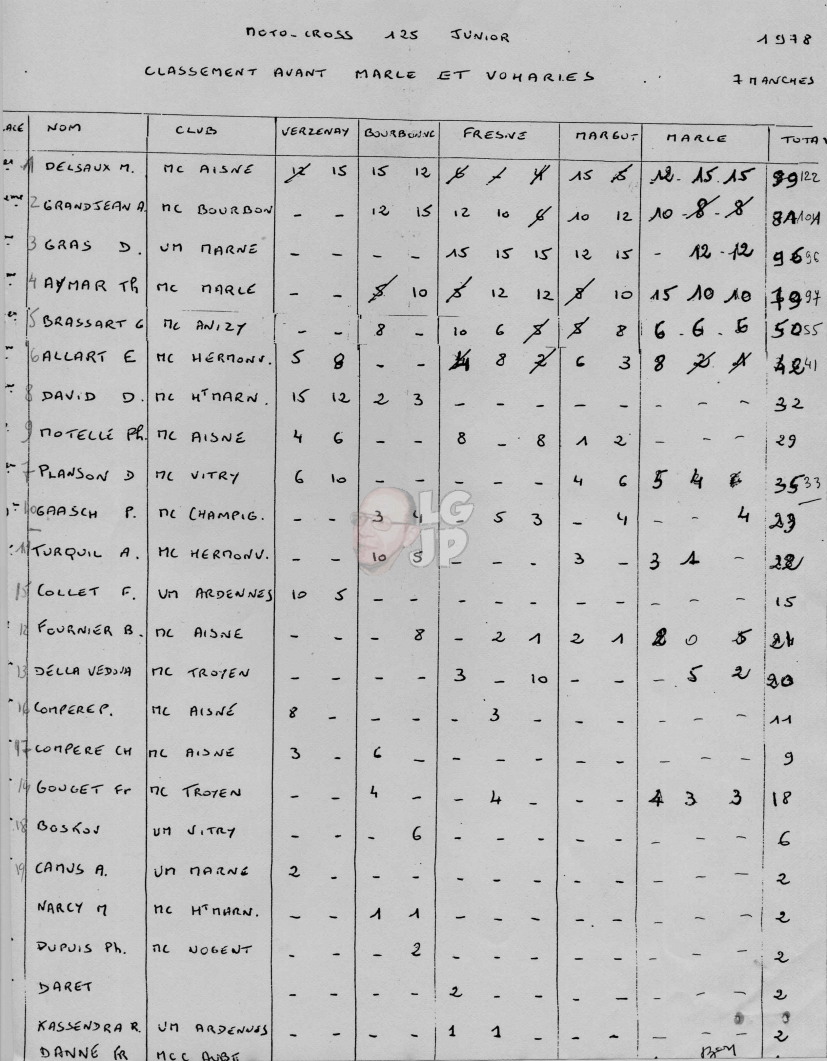 MOTO-CROSS 125 JUNIOR 1978
CLASSEMENT AVANT MARLE ET VOHARIES 7 MANCHES
NOM CLUB VERZENAY BOURBONNE FRESNE MARGUT MARLE
1 DELSAUX M. MC AISNE 12 15 15 12 15 12. 15. 15 122
2 GRANDJEAN A. MC BOURBON - - 12 15 12 10 6 10 12 10 - 8 - 8
3 GRAS D. UM MARNE - - - - 15 15 15 12 15 - 12 - 12 96 96
4 AYMAR Th MC MARLE - - 8 10 8 12 12 8 10 15 10 10 97
5 BRASSART G MC ANIZY - - 8 - 10 6 8 8 8 6. 6. 50 55
6 ALLART E MC HERMONV. 5 8 - - 8 2 6 3 8 41
8 DAVID D. MC HT MARN. 15 12 2 3 - - - - - - - - 32
9 MOTELLE Ph. MC AISNE 4 6 - - 8 - 8 1 2 - - - 29
7 PLANSON D MC VITRY 6 10 - - - - - 4 6 5 4 35 33
10 GAASCH P. MC CHAMPIG. 3 4 - 5 3 - 4 - - 4
LGJP
11 TURQUIL A. MC HERMONV. - - 10 5 - - - 3 - 3 1 -
15 COLLET F. UM ARDENNES 10 5 - - - - - - - - - - 15
12 FOURNIER B. MC AISNE - - - 8 - 2 1 2 1 2 0 5
13 DELLA VEDOVA MC TROYEN - - - - 3 - 10 - - - 5 2 20
16 COMPERE P. MC AISNE 8 - - - - 3 - - - - - - 11
17 COMPERE CH MC AISNE 3 - 6 - - - - - - - - - 9
14 GOUGET Fr MC TROYEN - - 4 - - 4 - - - 4 3 3 18
18 BOSKOV UM VITRY - - - 6 - - - - - - - - 6
19 CAMUS A. UM MARNE 2 - - - - - - - - - - - 2
NARCY M MC HT MARN. - - 1 1 - - - - - - - - 2
DUPUIS Ph. MC NOGENT - - - 2 - - - - - - - - 2
DARET - - - - 2 - - - - - - - 2
KASSENDRA R. UM ARDENNES - - - - 1 1 - - - - - - 2
DANNE FR MCC AUBE